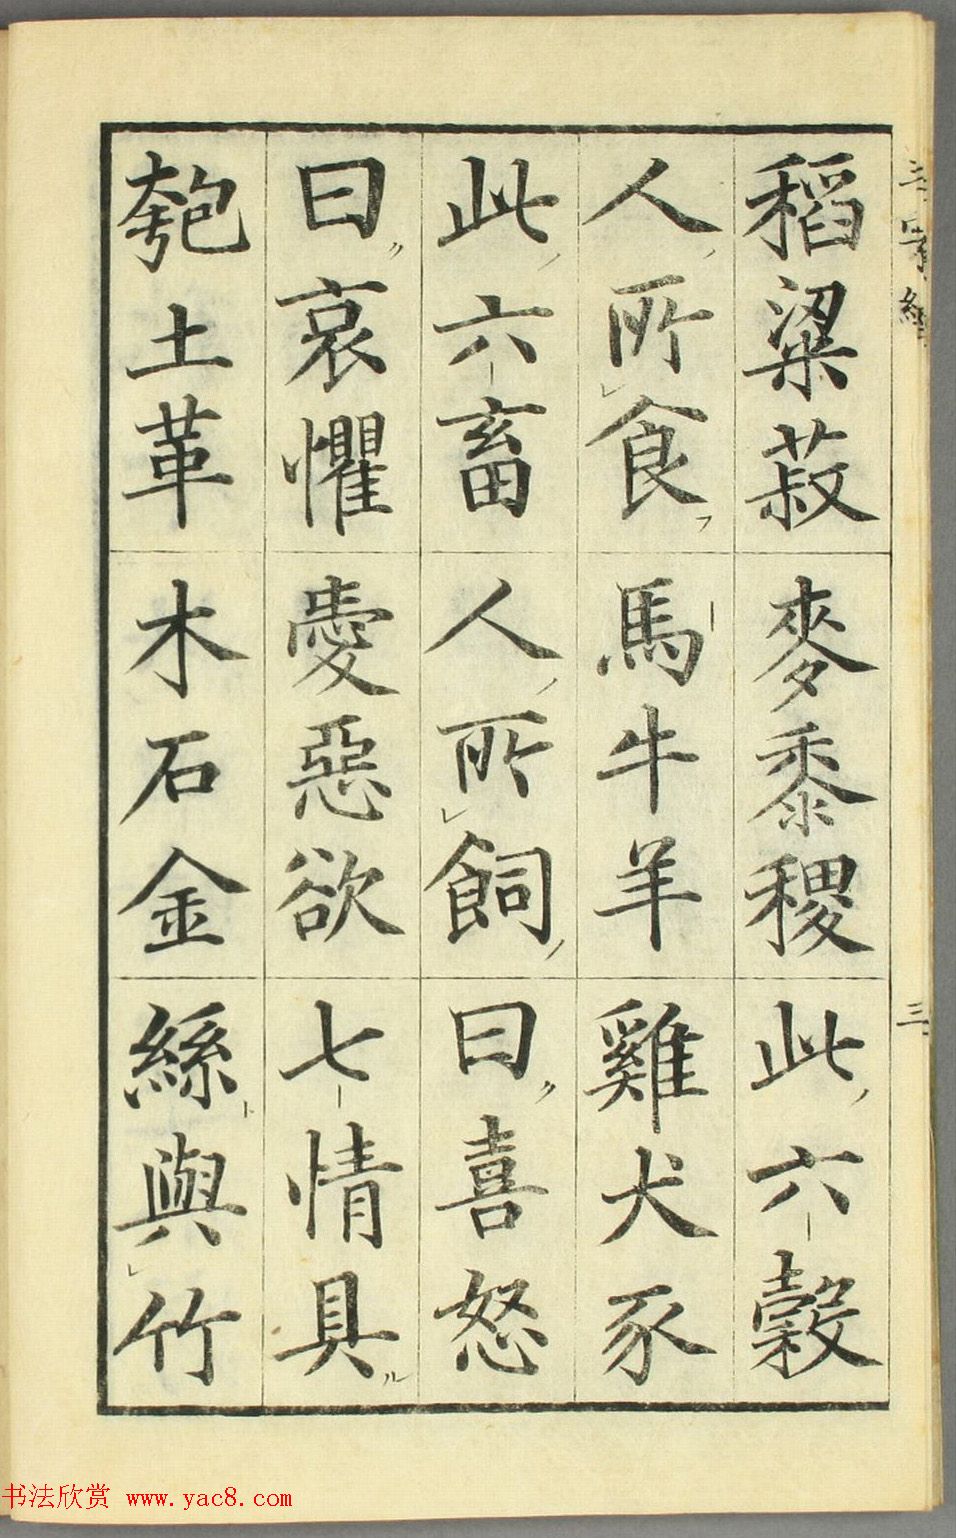 三字經
三
稻粱菽麥黍稷此六穀
人所食馬牛羊雞犬豕
此六畜人所飼曰喜怒
曰哀懼愛惡欲七情具
匏土革木石金絲與竹
书法欣赏 www.yac8.com